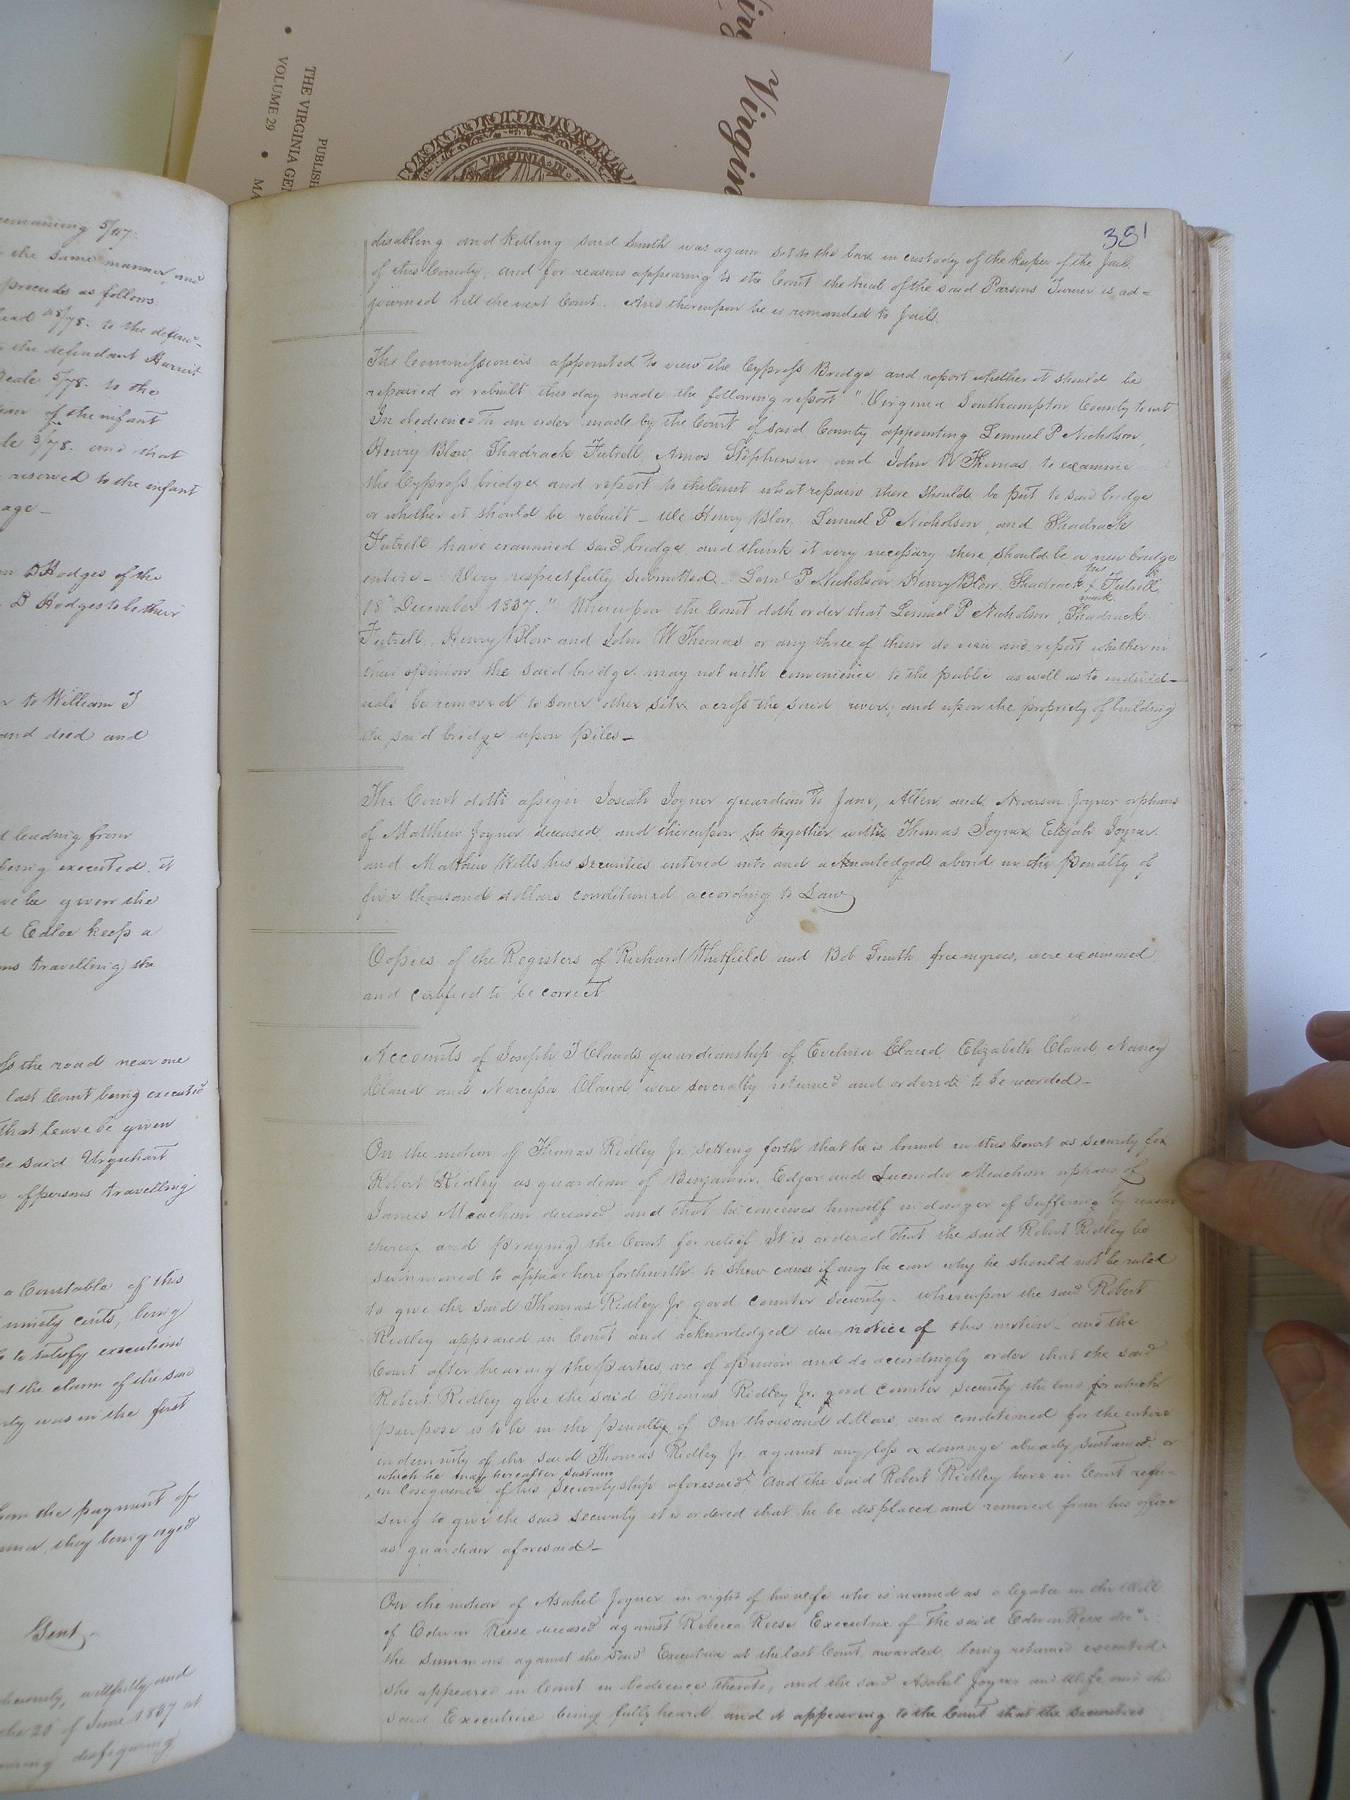 Virgin
PUBLISH
THE VIRGINIA GEN
VOLUME 29 • MA
VIRGINIA IN
remaining 5/117.
the same manner, and
proceeds as follows
to the defen-
the defendant Harriet
Beale 5/78. to the
of the infant
3/78. and that
reserved to the infant
age -
D Hodges of the
D Hodges to be their
to William J
and deed and
leading from
being executed, it
be given the
Edloe keep a
travelling the
the road near one
last Court being executed
that leave be given
said Urquhart
of persons travelling
a Constable of this
ninety cents, being
to satisfy executions
the claim of the said
was in the first
from the payment of
they being aged
Gent,-
wilfully and
the 20th of June 1837 at
disfiguring
381
disabling and killing said Smith was again set to the bar in custody of the keeper of the Jail
of this County, and for reasons appearing to the Court the trial of the said Parsons Turner is ad-
journed till the next Court. And thereupon he is remanded to Jail.
The Commissioners appointed to view the Cypress Bridge and report whether it should be
repaired or rebuilt this day made the following report "Virginia Southampton County Court
In obedience to an order made by the Court of said County appointing Lemuel P Nicholson,
Henry Blow, Shadrack Futrell, Amos Stephenson and John W Thomas to examine
the Cypress bridge and report to the Court what repairs there should be put to said bridge
or whether it should be rebuilt - We Henry Blow, Lemuel P Nicholson, and Shadrack
Futrell have examined said bridge, and think it very necessary there should be a new bridge
entire - Very respectfully submitted - Lem' P Nicholson, Henry Blow, Shadrack his X mark Futrell,
18th December 1837." Whereupon the Court doth order that Lemuel P Nicholson, Shadrack
Futrell, Henry Blow and John W Thomas or any three of them do view and report whether in
their opinion the said bridge may not with convenience to the public as well as to individ-
uals be removed to some other site across the said river; and upon the propriety of building
the said bridge upon piles -
The Court doth assign Josiah Joyner guardian to Jane, Allen and Joyner orphans
of Matthew Joyner deceased and thereupon he together with Thomas Joyner Elijah Joyner
and Matthew Wills his securities entered into and acknowledged a bond in the Penalty of
five thousand dollars conditioned according to Law
Copies of the Registers of Richard Whitfield and Bob Smith free negroes, were examined
and certified to be correct
Accounts of Joseph J Claud's guardianship of Evelina Claud, Elizabeth Claud Nancy
Claud and Narcissa Claud were severally returned and ordered to be recorded -
On the motion of Thomas Ridley Jr. setting forth that he is bound in this Court as security for
Robert Ridley as guardian of Benjamin, Edgar and Lucinda Meacham orphans of
James Meacham deceased and that he conceives himself in danger of suffering by reason
thereof and praying the Court for relief It is ordered that the said Robert Ridley be
summoned to appear here forthwith to show cause if any he can why he should not be ruled
to give the said Thomas Ridley Jr good counter security - whereupon the said Robert
Ridley appeared in Court and acknowledged due notice of this motion - and the
Court after hearing the parties are of opinion and do accordingly order that the said
Robert Ridley give the said Thomas Ridley Jr. good counter security the bond for which
purpose is to be in the penalty of One thousand dollars, and conditioned for the entire
indemnity of the said Thomas Ridley Jr. against any loss or damage already sustained or
which he may hereafter sustain
in Cosequence of his Securityship aforesaid. And the said Robert Ridley here in Court refu-
sing to give the said security it is ordered that he be displaced and removed from his office
as guardian aforesaid -
On the motion of Asahel Joyner in right of his wife who is named as a legatee in the Will
of Edwin Reese deceased against Rebecca Reese Executrix of the said Edwin Reese dec'd.
the summons against the said Executrix at the last Court awarded being returned executed
she appeared in Court in obedience thereto, and the said Asahel Joyner and Wife and the
said Executrix being fully heard and it appearing to the Court that the securities